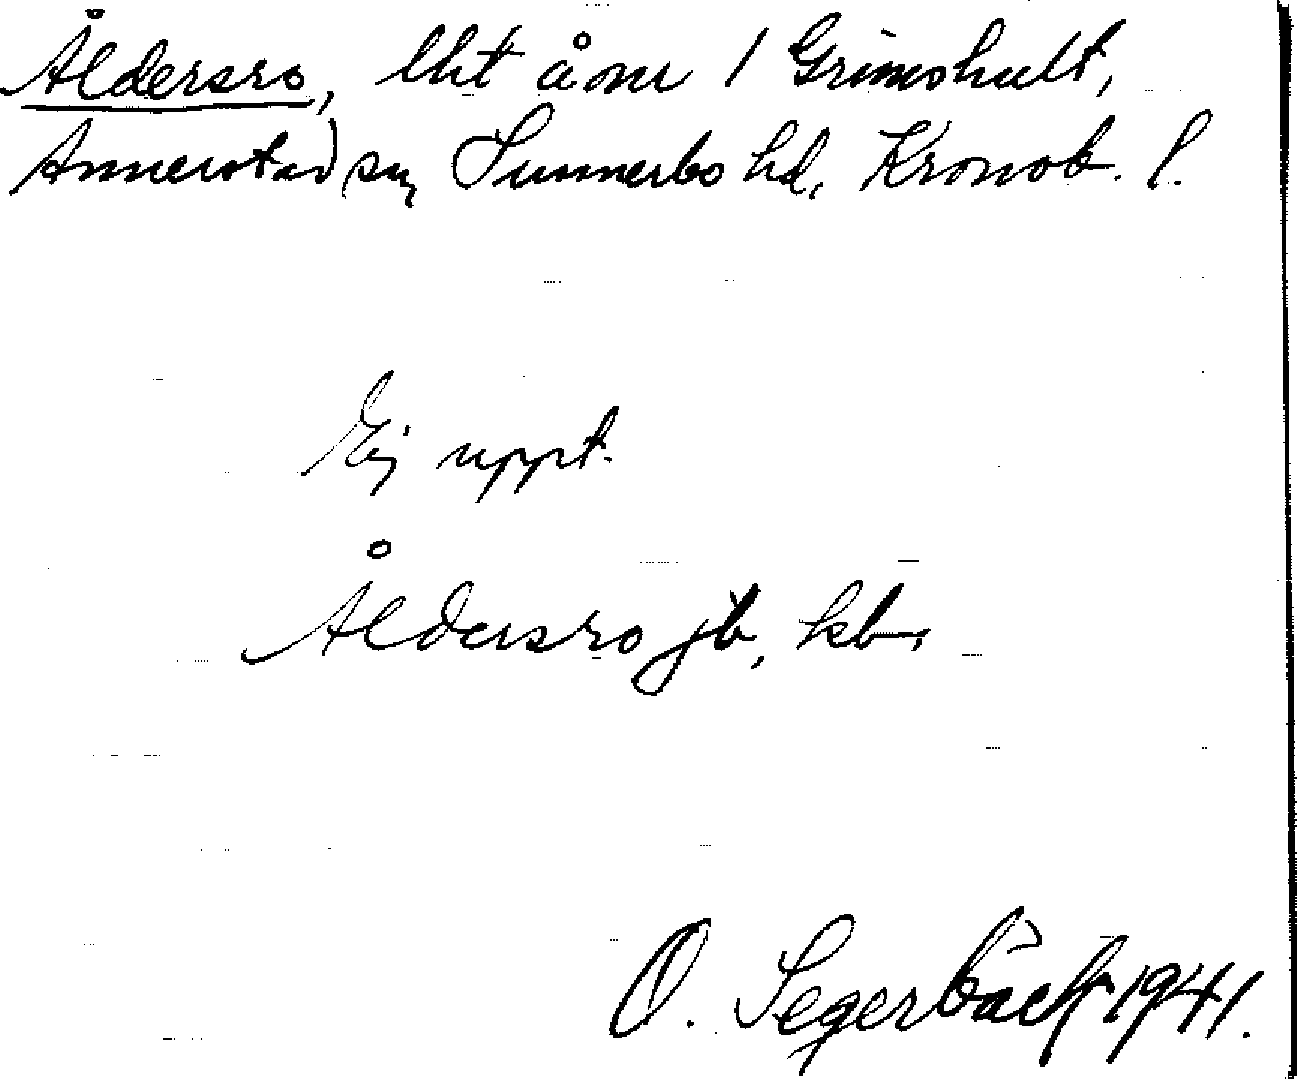 Åldersro, lht å nr 1 Grimshult,
Annerstad sn, Sunnerbo hd, Kronob. l.
Ej uppt.
Åldersro jb, kb.
O. Segerbäck 1941.